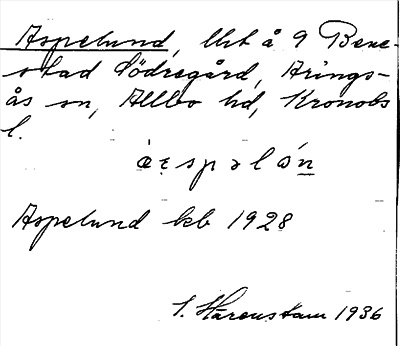 Aspelund, lht å 9 Bene-
stad Södregård, Arings-
ås sn, Allbo hd, Kronobs
l.
Aspelund kb 1928
S. Härenstam 1936